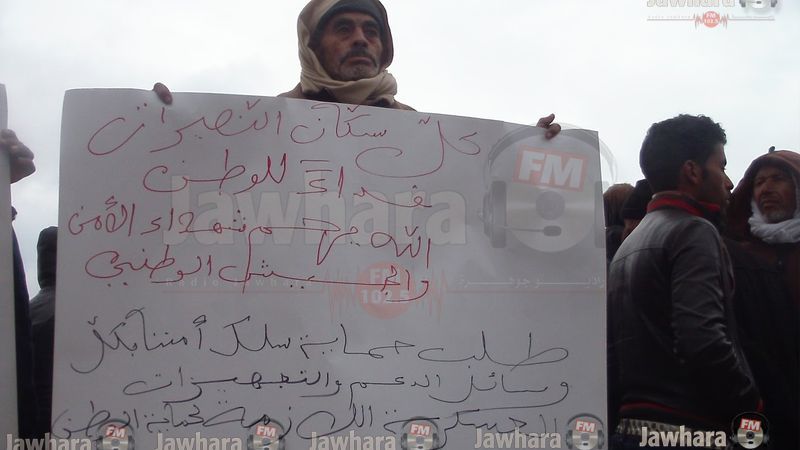 كلّ سكان النصيرات
فداءً للوطن
الله يرحم شهداء الأمن
والجيش الوطني
طلب حماية سلك أمننا بكلّ
وسائل الدعم والتجهيزات
العسكرية اللازمة لحماية الوطن
Jawhara FM
راديو جوهرة
Radio Jawhara FM 102.5
Jawhara FM Jawhara FM Jawhara FM Jawhara FM Jawhara FM